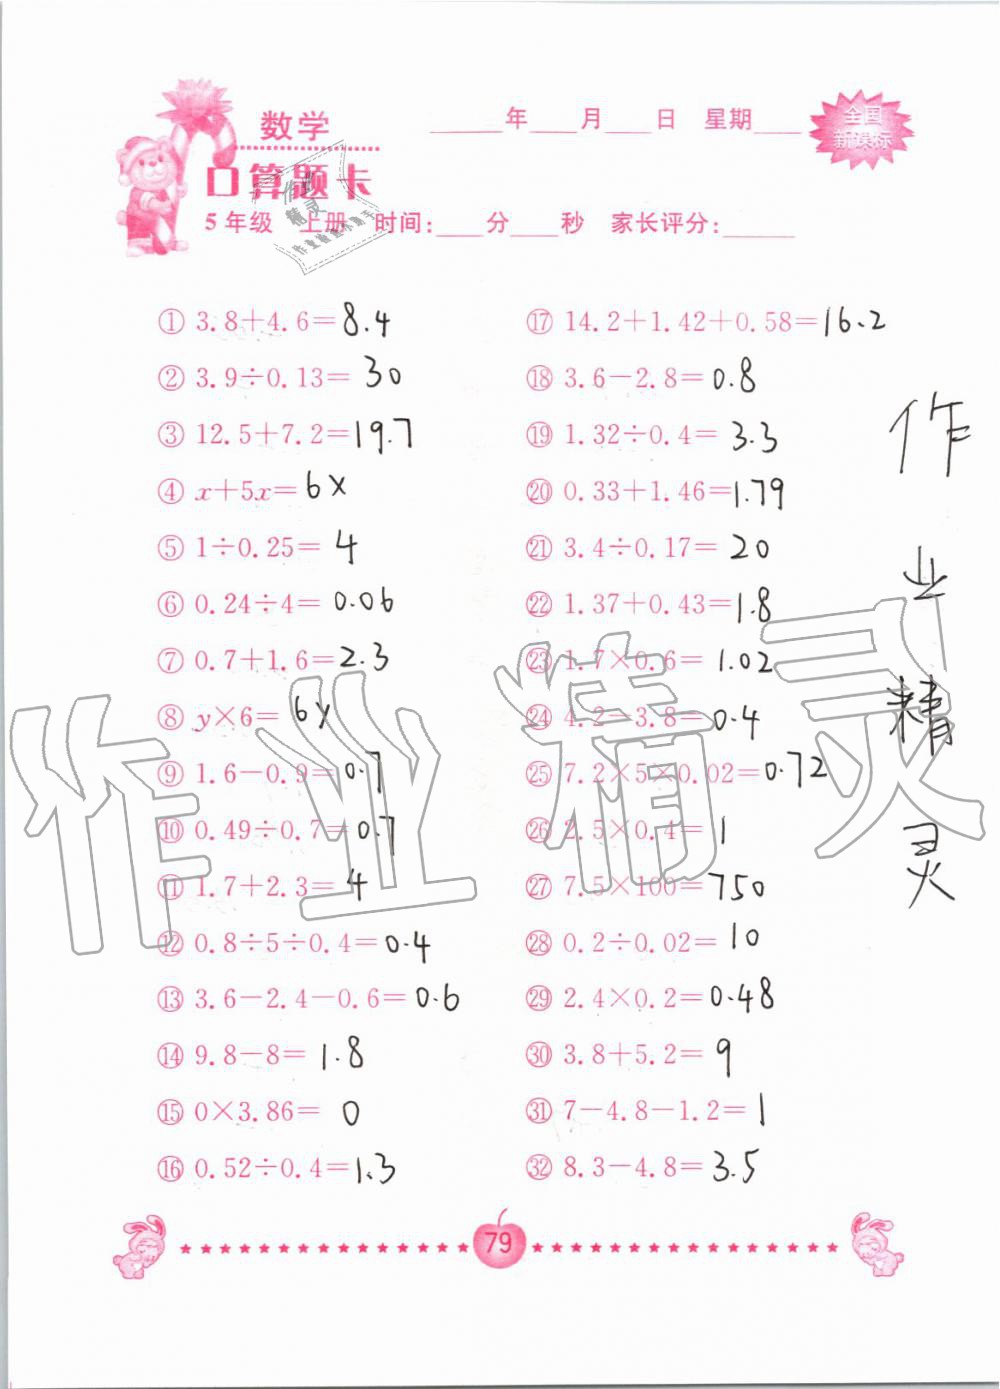 数学
____年____月____日 星期____
全国
新课标
口算题卡
5年级 上册 时间:____分____秒 家长评分:____
作业
精灵
① 3.8+4.6=8.4
② 3.9÷0.13=30
③ 12.5+7.2=19.7
④ x+5x=6x
⑤ 1÷0.25=4
⑥ 0.24÷4=0.06
⑦ 0.7+1.6=2.3
⑧ y×6=6y
⑨ 1.6-0.9=0.7
⑩ 0.49÷0.7=0.7
⑪ 1.7+2.3=4
⑫ 0.8÷5÷0.4=0.4
⑬ 3.6-2.4-0.6=0.6
⑭ 9.8-8=1.8
⑮ 0×3.86=0
⑯ 0.52÷0.4=1.3
⑰ 14.2+1.42+0.58=16.2
⑱ 3.6-2.8=0.8
⑲ 1.32÷0.4=3.3
⑳ 0.33+1.46=1.79
㉑ 3.4÷0.17=20
㉒ 1.37+0.43=1.8
㉓ 1.7×0.6=1.02
㉔ 4.2-3.8=0.4
㉕ 7.2×5×0.02=0.72
㉖ 2.5×0.4=1
㉗ 7.5×100=750
㉘ 0.2÷0.02=10
㉙ 2.4×0.2=0.48
㉚ 3.8+5.2=9
㉛ 7-4.8-1.2=1
㉜ 8.3-4.8=3.5
作业精灵
作业精灵
79